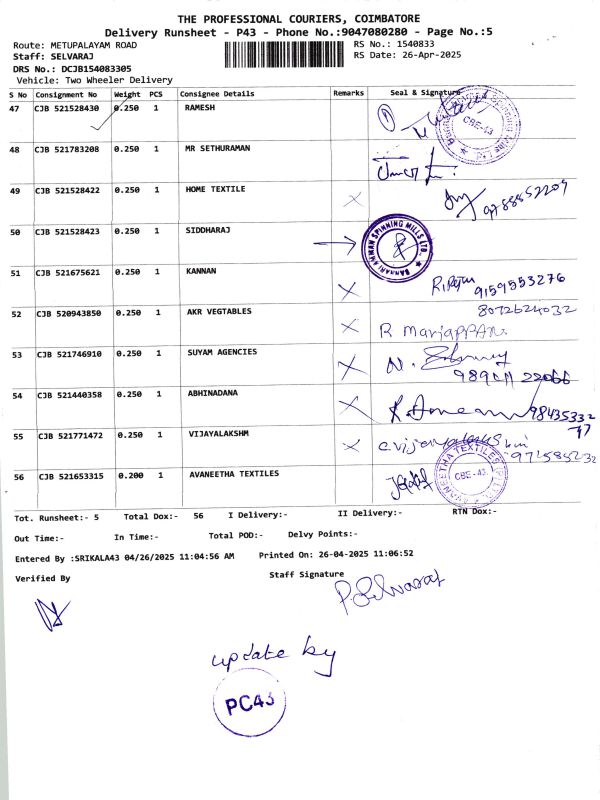 THE PROFESSIONAL COURIERS, COIMBATORE
Delivery Runsheet - P43 - Phone No.:9047080280 - Page No.:5
Route: METUPALAYAM ROAD RS No.: 1540833
Staff: SELVARAJ RS Date: 26-Apr-2025
DRS No.: DCJB154083305
Vehicle: Two Wheeler Delivery
S No Consignment No Weight PCS Consignee Details Remarks Seal & Signature
47 CJB 521528430 0.250 1 RAMESH CBE-43
48 CJB 521783208 0.250 1 MR SETHURAMAN
49 CJB 521528422 0.250 1 HOME TEXTILE X 9788852209
50 CJB 521528423 0.250 1 SIDDHARAJ BANNARI AMMAN SPINNING MILLS LTD.
51 CJB 521675621 0.250 1 KANNAN X 9159553276
52 CJB 520943850 0.250 1 AKR VEGTABLES X 8072624032
R MariAPPAN.
53 CJB 521746910 0.250 1 SUYAM AGENCIES X
54 CJB 521440358 0.250 1 ABHINADANA X 98435332
77
55 CJB 521771472 0.250 1 VIJAYALAKSHM X
56 CJB 521653315 0.200 1 AVANEETHA TEXTILES AVANEETHA TEXTILES CBE-43
Tot. Runsheet:- 5 Total Dox:- 56 I Delivery:- II Delivery:- RTN Dox:-
Out Time:- In Time:- Total POD:- Delvy Points:-
Entered By :SRIKALA43 04/26/2025 11:04:56 AM Printed On: 26-04-2025 11:06:52
Verified By Staff Signature
P.Selvaraj
update by
PC43